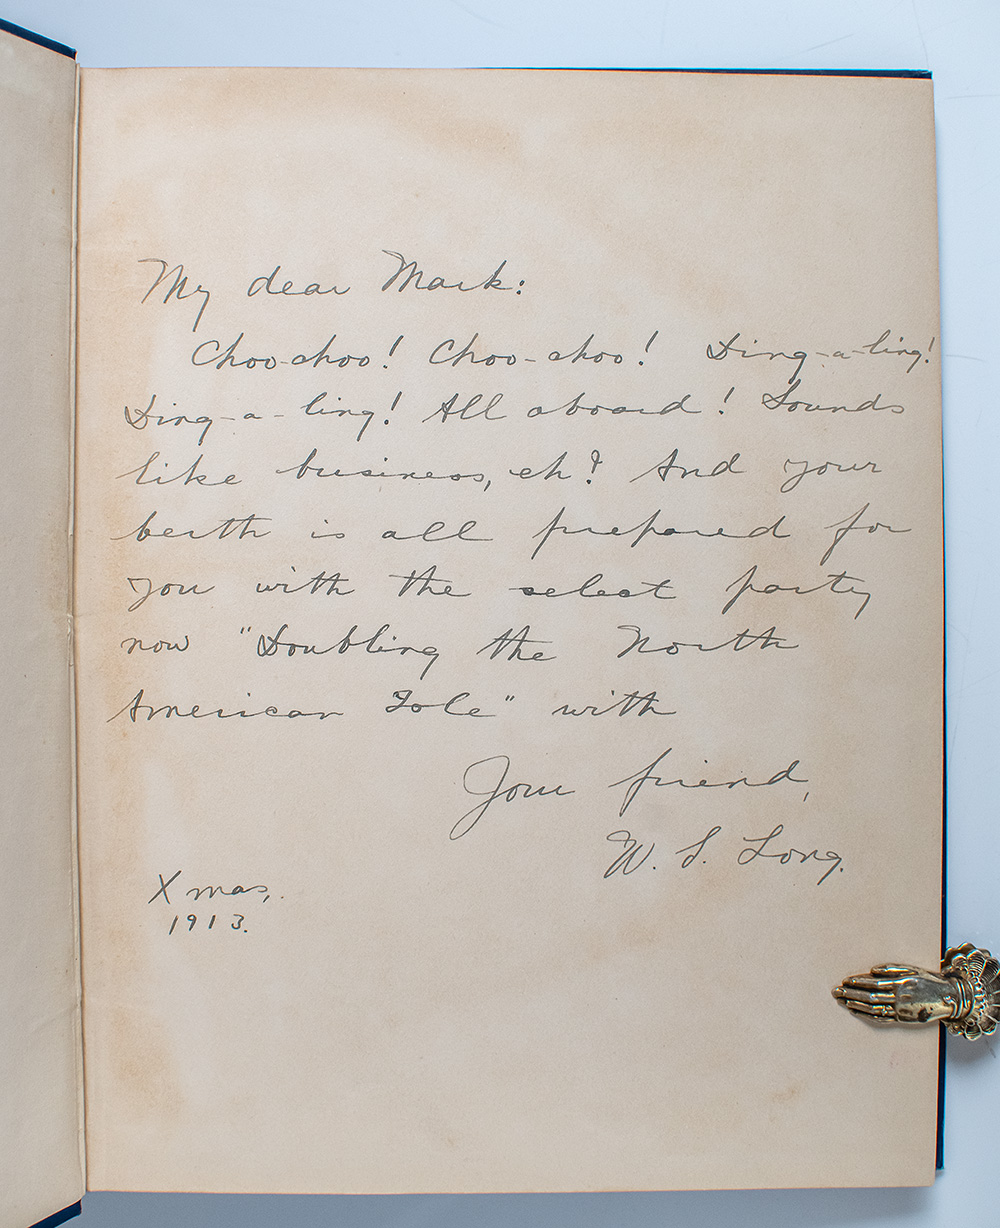 My dear Mark:
Choo-choo! Choo-choo! Ding-a-ling!
Ding-a-ling! All aboard! Sounds
like business, eh? And your
berth is all prepared for
you with the select party
now "Doubling the North
American Pole" with
Your friend,
W. S. Long.
Xmas,
1913.